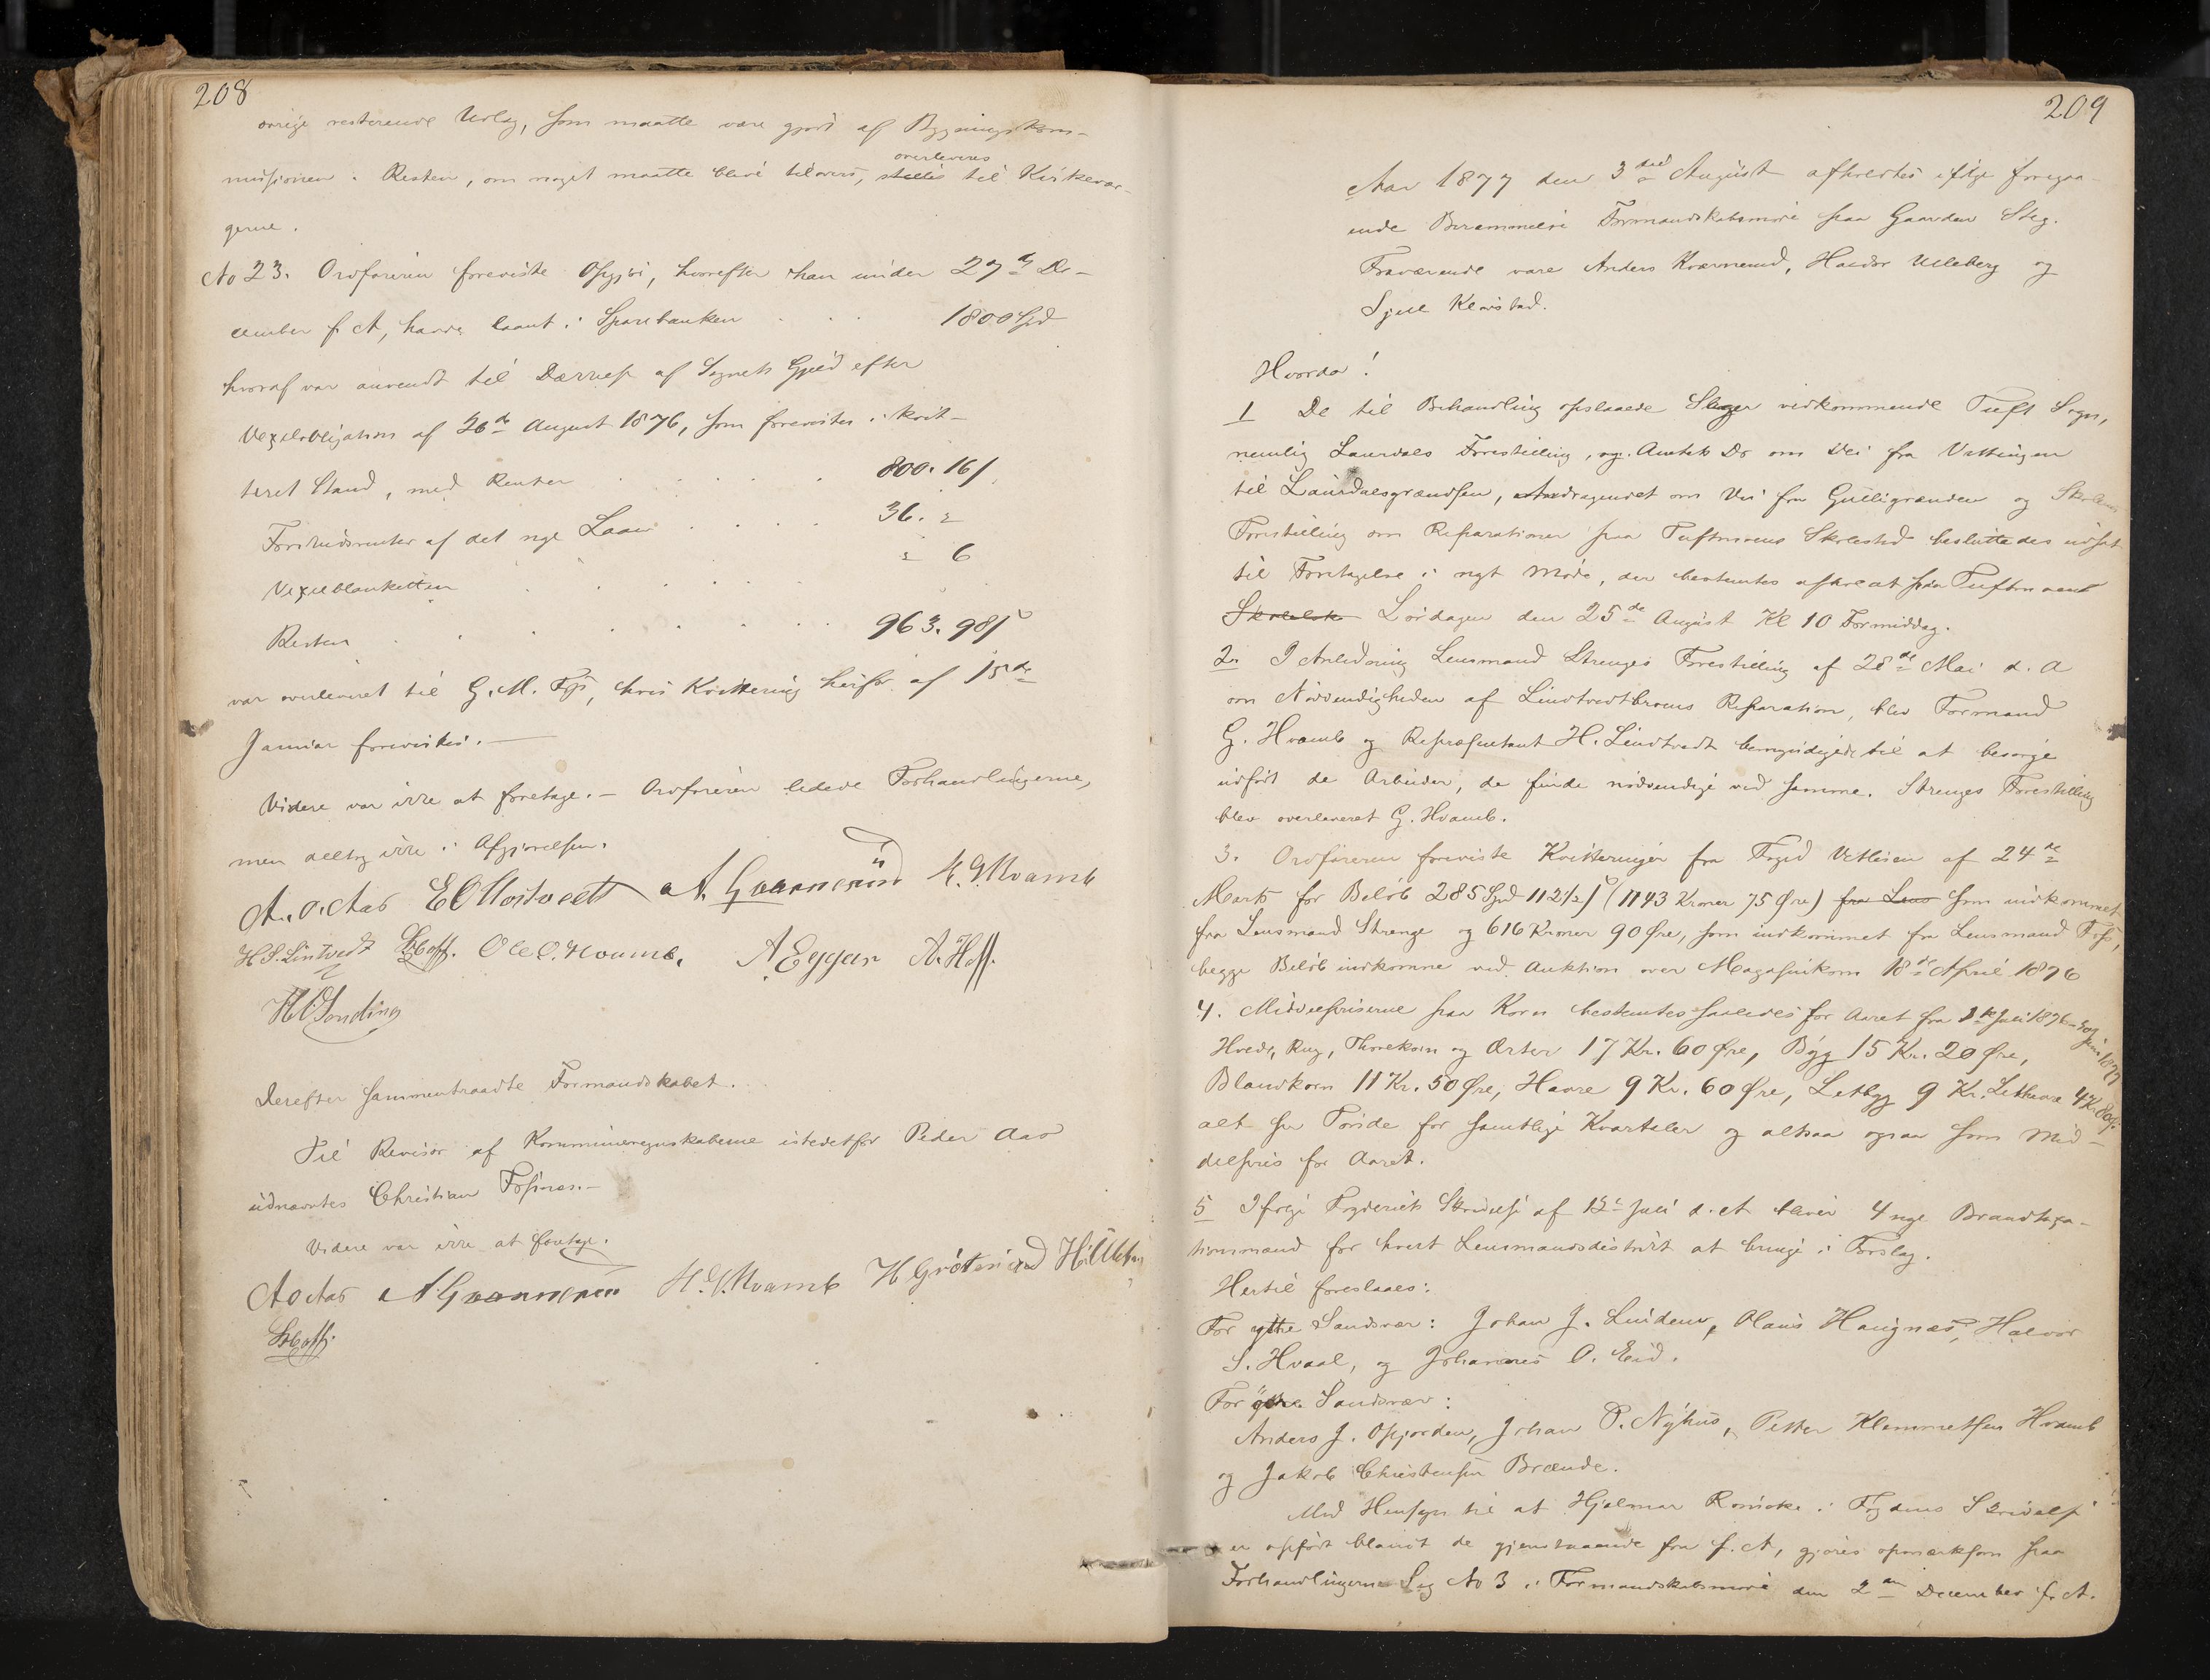 208
øvrige resterende Udlæg, som maatte være gjort af Bygningskom-
missionen. Resten, om noget maatte blive tilovers, stilles overleveres til Kirkevær-
gerne.
No 23. Ordføreren foreviste Opgjør, hvorefter han under 27de De-
cember f. A, havde laant i Sparebanken . . . 1800 Spd
hvoraf var anvendt til Dækkelse af Sognets Gjeld efter
Vexelobligation af 26de August 1876, som forevistes i kvit-
teret Stand, med Renter . . . . . 800. 16 ſ
Forskudsrenter af det nye Laan . . . . 36. "
Vexelblanketten . . . . . " 6
Resten . . . . . . . 963. 98 ſ
var overleveret til G. M. Foss, hvis Kvittering herfor af 15de
Januar forevistes. —
Videre var ikke at foretage. — Ordføreren ledede Forhandlingerne,
men deltog ikke i Afgjørelsen.
A. O. Aas E O Mostvedt A. Gvarnerüd H. G. Hvamb
H. S. Lintvedt Hoff. Ole O. Hvamb. A. Eggar A. Hoff.
Derefter sammentraadte Formandskabet.
Til Revisor af Kommuneregnskaberne istedetfor Peder Aas
udnævntes Christian Fossnæs. —
Videre var ikke at foretage.
A O Aas A. H. G. Hvamb H Grøterud
Hoff.
209
Aar 1877 den 3die August afholdtes ifølge foregaa-
ende Berammelse Formandskabsmøde paa Gaarden Steg.
Fraværende vare Anders Kvarnerud, Halvor Ulleberg og
Klovstad.
Hvorda!
1 De til Behandling opslaaede Sager vedkommende Tuft Sogn,
nemlig Laurdals Forestilling, og Amtets Do om Vei fra Vettingen
til Laurdalsgrændsen, Andragendet om Vei fra Gulligrænden og Skolens
Forestilling om Reparationer paa Tuftmoens Skolested besluttedes udsat
til Foretagelse i nyt Møde, der bestemtes afholdt paa Tuftmoens
Skolelok Lørdagen den 25de August Kl 10 Formiddag.
2. I Anledning Lensmand Strenges Forestilling af 28de Mai d. A
om Nødvendigheden af Lindtvedtbroens Reparation, blev Formand
G. Hvamb og Repræsentant H. Lindtvedt bemyndigede til at besørge
udført de Arbeider, de finde nødvendige ved samme. Strenges Forestilling
blev overleveret G. Hvamb.
3. Ordføreren foreviste Kvitteringer fra Foged Vetlesen af 24de
Marts for Beløb 285 Spd 112½ ſ (1143 Kroner 75 Øre) fra Lens som indkommet
fra Lensmand Strenge og 616 Kroner 90 Øre, som indkommet fra Lensmand Foss,
begge Beløb indkomne ved Auktion over Magasinkorn 18de April 1876
4. Middelpriserne paa Korn bestemtes saaledes for Aaret fra 1ste Juli 1876 – 30 Juni 1877
Hvede, Rug, Thorekorn og Erter 17 Kr. 60 Øre, Byg 15 Kr. 20 Øre,
Blandkorn 11 Kr. 50 Øre, Havre 9 Kr. 60 Øre, Letbyg 9 Kr. Lethavre 4 Kr 80 Ø.
alt pr Tønde for samtlige Kvartaler og altsaa ogsaa som Mid-
delpris for Aaret.
5 Ifølge Fogderiets Skrivelse af 12te Juli d. A bliver 4 nye Brandtaxa-
tionsmænd for hvert Lensmandsdistrikt at bringe i Forslag.
Hertil foreslaaes:
For ytre Sandsvær: Johan J. Linderud, Olaus Haugnæs, Halvor
S. Hvaal, og Johannes O. Eid.
For øvre Sandsvær:
Anders J. Opjorden, Johan P. Nyhus, Petter Klemmetsen Hvamb
og Jakob Christensen Brænde.
Med Hensyn til at Hjelmar Ronicke i Fogdens Skrivelse
er opført blandt de gjenstaaende fra f. A, gjøres opmærksom paa
Forhandlingerne Sag No 3 i Formandskabsmøde den 2den December f. A.